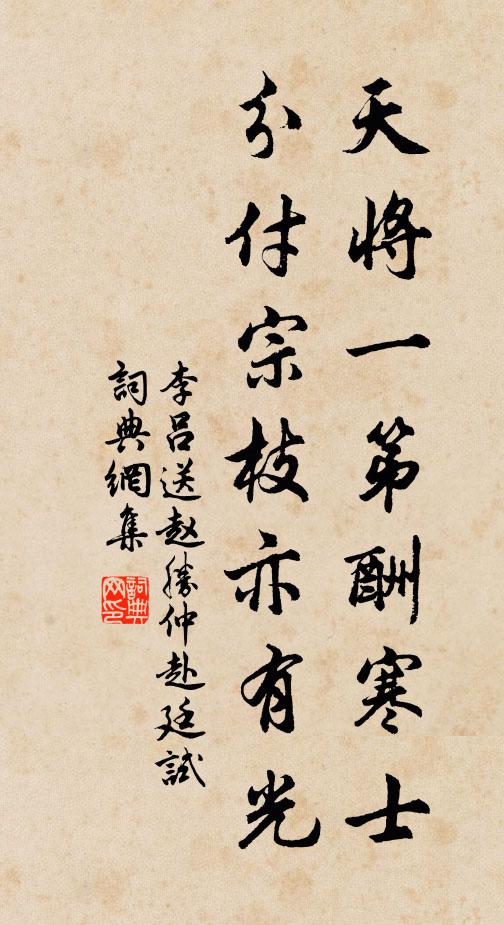 天将一第酬寒士
分付宗枝亦有光
李吕送赵胜仲赴廷試
詞典網集
詞典网印